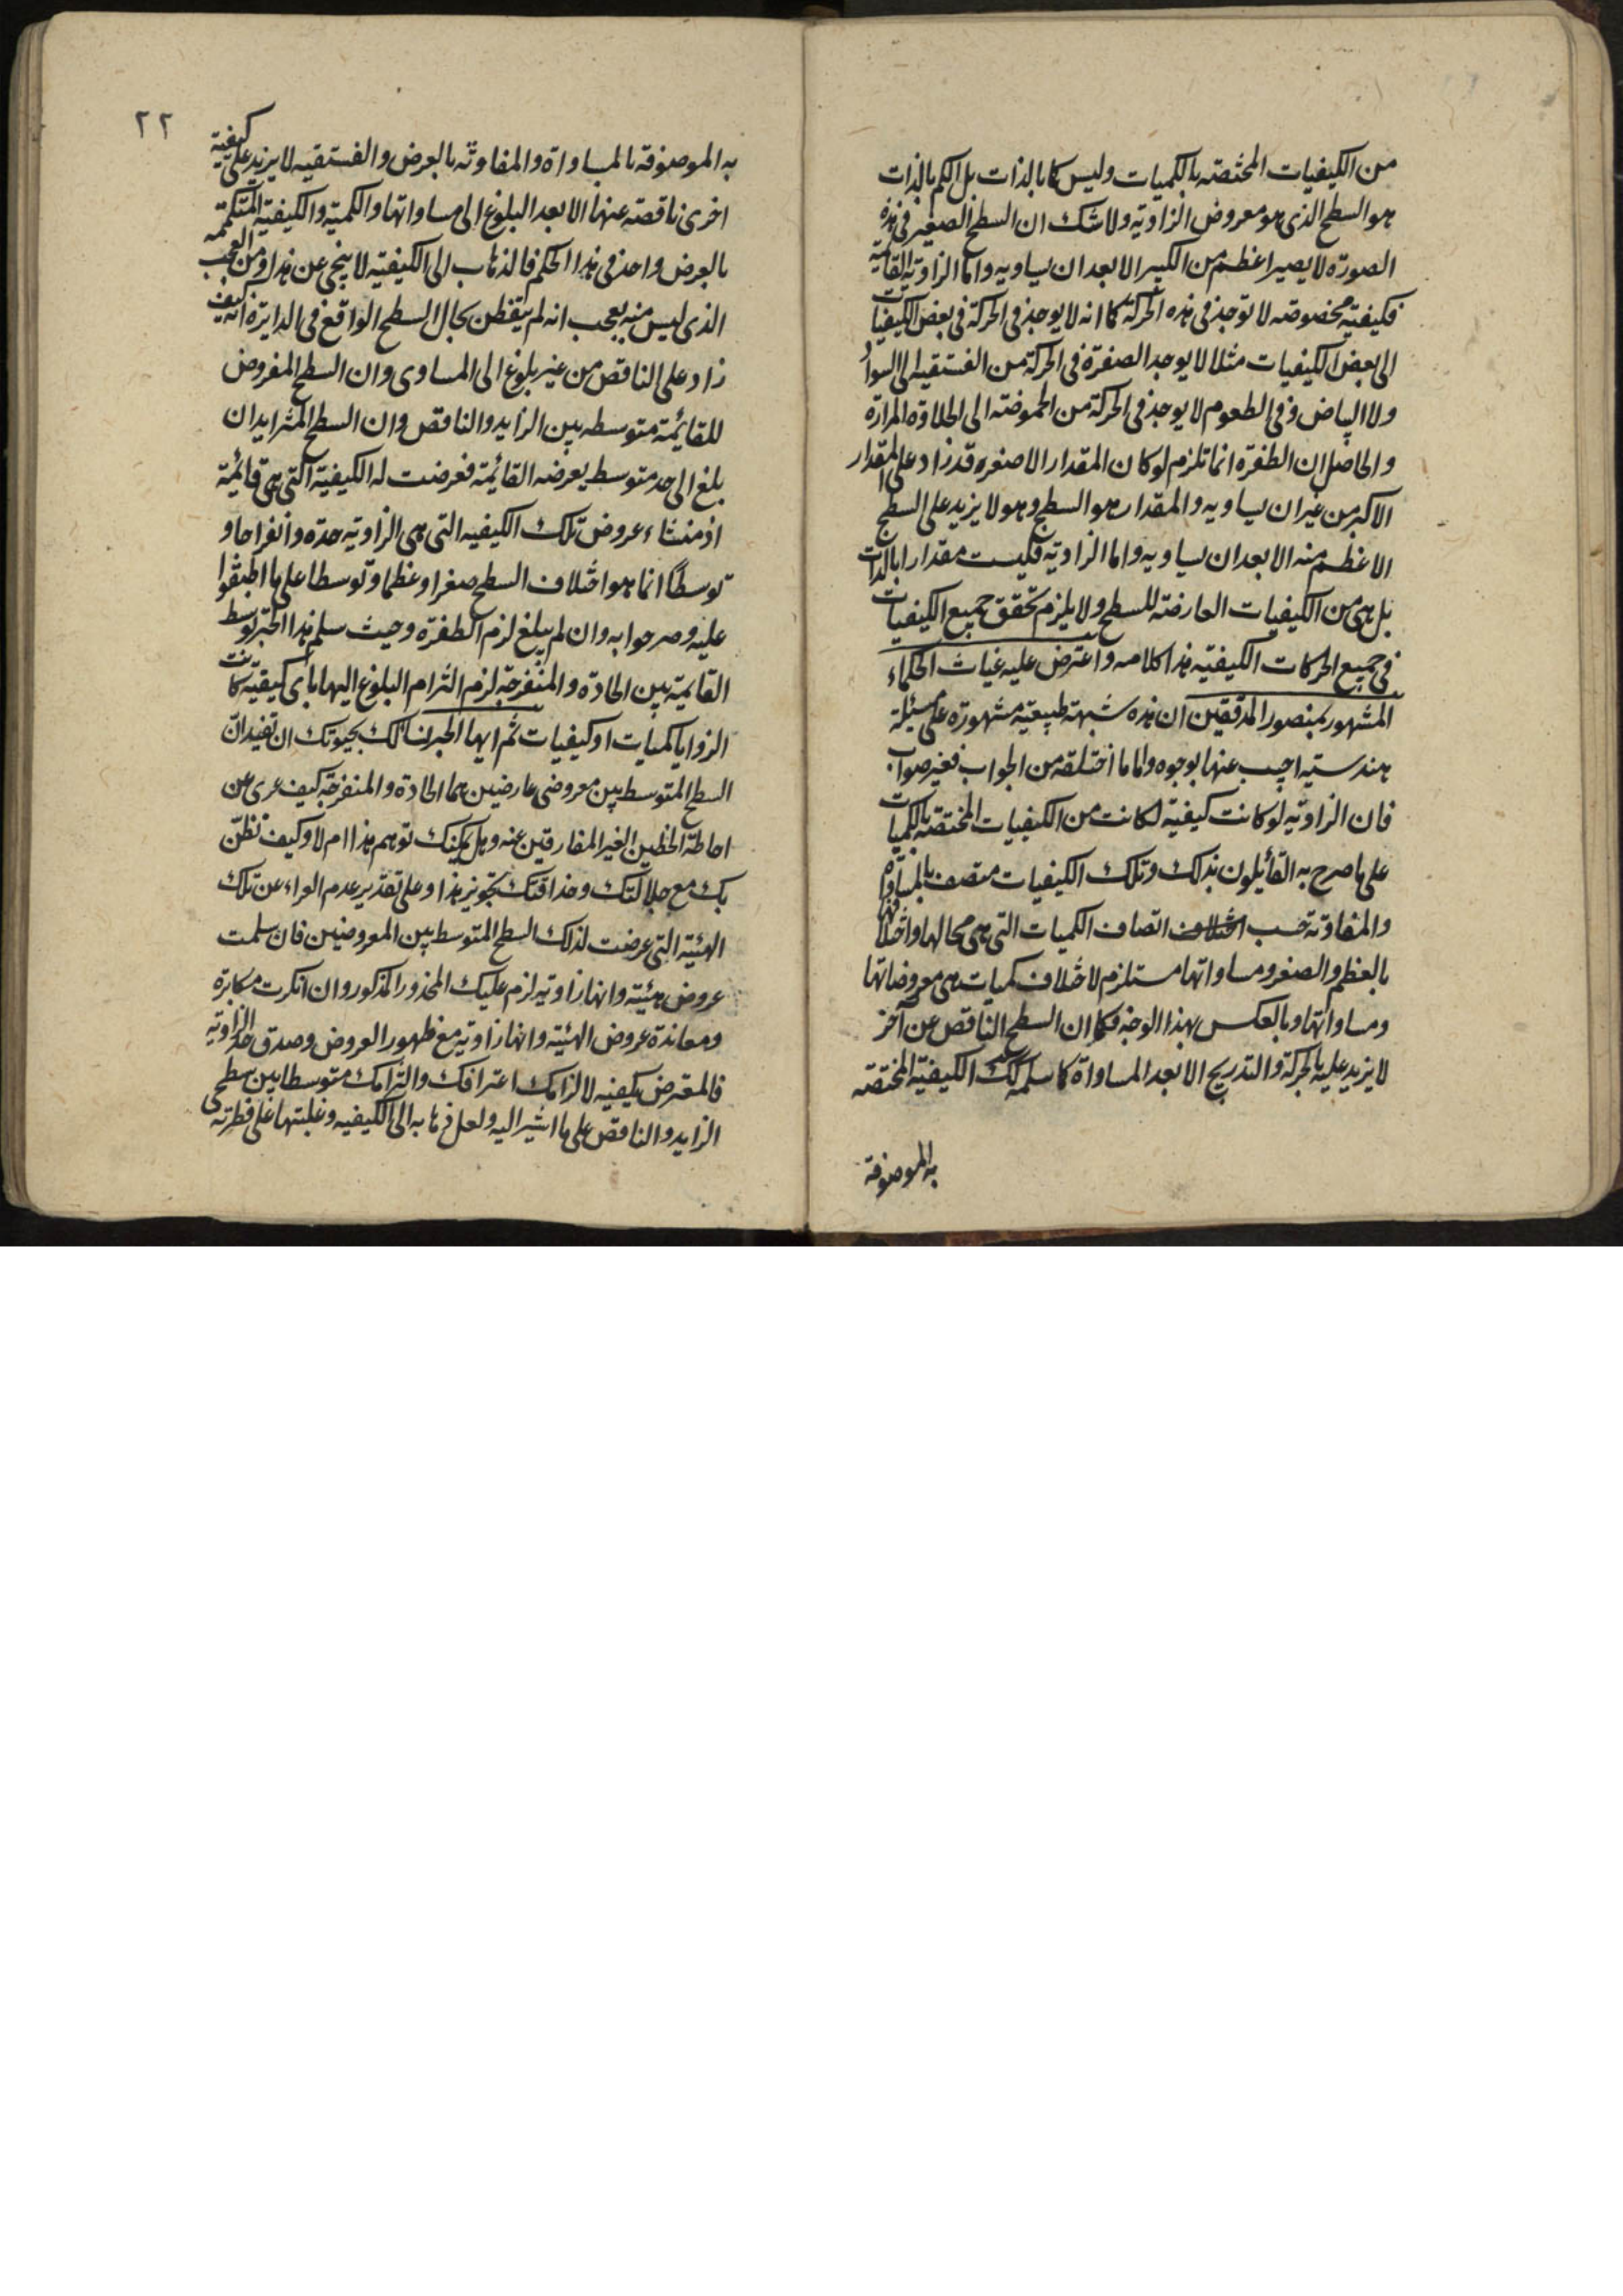 من الكيفيات المختصة بالكميات وليس كما بالذات بل الكم بالذات
هو السطح الذى هو معروض الزاوية ولا شك ان السطح الصغير فى هذه
الصورة لا يصير اعظم من الكبير الا بعد ان يساويه واما الزاوية القايمة
فكيفية مخصوصة لا توجد فى هذه الحركة كما انه لا يوجد فى الحركة فى بعض الكيفيات
الى بعض الكيفيات مثلا لا يوجد الصفرة فى الحركة من الفستقية الى السواد
ولا البياض وفى الطعوم لا يوجد فى الحركة من الحموضة الى الحلاوة المرارة
والحاصل ان الطفرة انما تلزم لو كان المقدار الاصغر قد زاد على المقدار
الاكبر من غير ان يساويه والمقدار هو السطح وهو لا يزيد على السطح
الاعظم منه الا بعد ان يساويه واما الزاوية فليست مقدارا بالذات
بل هى من الكيفيات العارضة للسطح ولا يلزم تحقق جميع الكيفيات
فى جميع الحركات الكيفية هذا كلامه واعترض عليه غياث الحكماء
المشهور بمنصور المدققين ان هذه شبهة طبيعية مشهورة على مسئلة
هندسية اجيب عنها بوجوه واما ما اختلقه من الجواب فغير صواب
فان الزاوية لو كانت كيفية لكانت من الكيفيات المختصة بالكميات
على ما صرح به القائلون بذلك وتلك الكيفيات متصف بالمساواة
والمفاوتة حسب اتصاف الكميات التى هى محالها واختلافها
بالعظم والصغر ومساواتها مستلزم لاختلاف كميات هى معروضاتها
ومساواتها وبالعكس بهذا الوجه فكما ان السطح الناقص عن آخر
لا يزيد عليه بالحركة والتدريج الا بعد المساواة كما سلمه كك الكيفية المختصة
به الموصوفة
٢٢
به الموصوفة بالمساواة والمفاوتة بالعرض والفستقية لا يزيد على كيفية
اخرى ناقصة عنها الا بعد البلوغ الى مساواتها والكمية والكيفية المتكممة
بالعرض واحد فى هذا الحكم فالذهاب الى الكيفية لا ينجى عن هذا ومن العجب
الذى ليس منه بعجب انه لم يتفطن بحال السطح الواقع فى الدايرة انه كيف
زاد على الناقص من غير بلوغ الى المساوى وان السطح المفروض
للقائمة متوسطه بين الزايد والناقص وان السطح المتزايد ان
بلغ الى حد متوسط يعرضه القائمة فعرضت له الكيفية التى هى قائمة
اذ منشاء عروض تلك الكيفيه التى هى الزاوية حدة وانفراجا و
توسطا انما هو اختلاف السطح صغرا وعظما وتوسطا على ما اطبقوا
عليه وصرحوا به وان لم يبلغ لزم الطفرة وحيث سلم هذا الحبر توسط
القايمة بين الحادة والمنفرجة لزم التزام البلوغ اليها باى كيفية كانت
الزوايا كميات او كيفيات ثم ايها الحبر نسالك بحيوتك ان تفيد ان
السطح المتوسط بين معروضى عارضين هما الحادة والمنفرجة كيف عرى عن
احاطة الخطين الغير المفارقتين عنه وهل يمكنك توهم هذا ام لا وكيف نظن
بك مع جلالتك وحذاقتك تجويز هذا وعلى تقدير عدم العراء عن تلك
الهيئة التى عرضت لذلك السطح المتوسط بين المعروضين فان سلمت
عروض هيئة وانها زاوية لزم عليك المحذور المذكور وان انكرت مكابرة
ومعاندة عروض الهيئة وانها زاوية مع ظهور العروض وصدق حد الزاوية
فالمعترض يكفيه لالزامك اعترافك والتزامك متوسطا بين سطحى
الزايد والناقص على ما اشير اليه ولعل ذهابه الى الكيفيه وغلبتها على فطرته